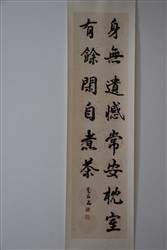 身無遺憾常安枕室
有餘閑自煮茶